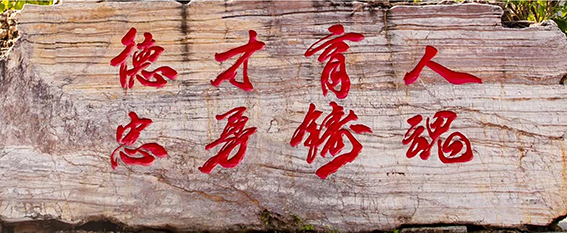 德才育人
忠勇铸魂